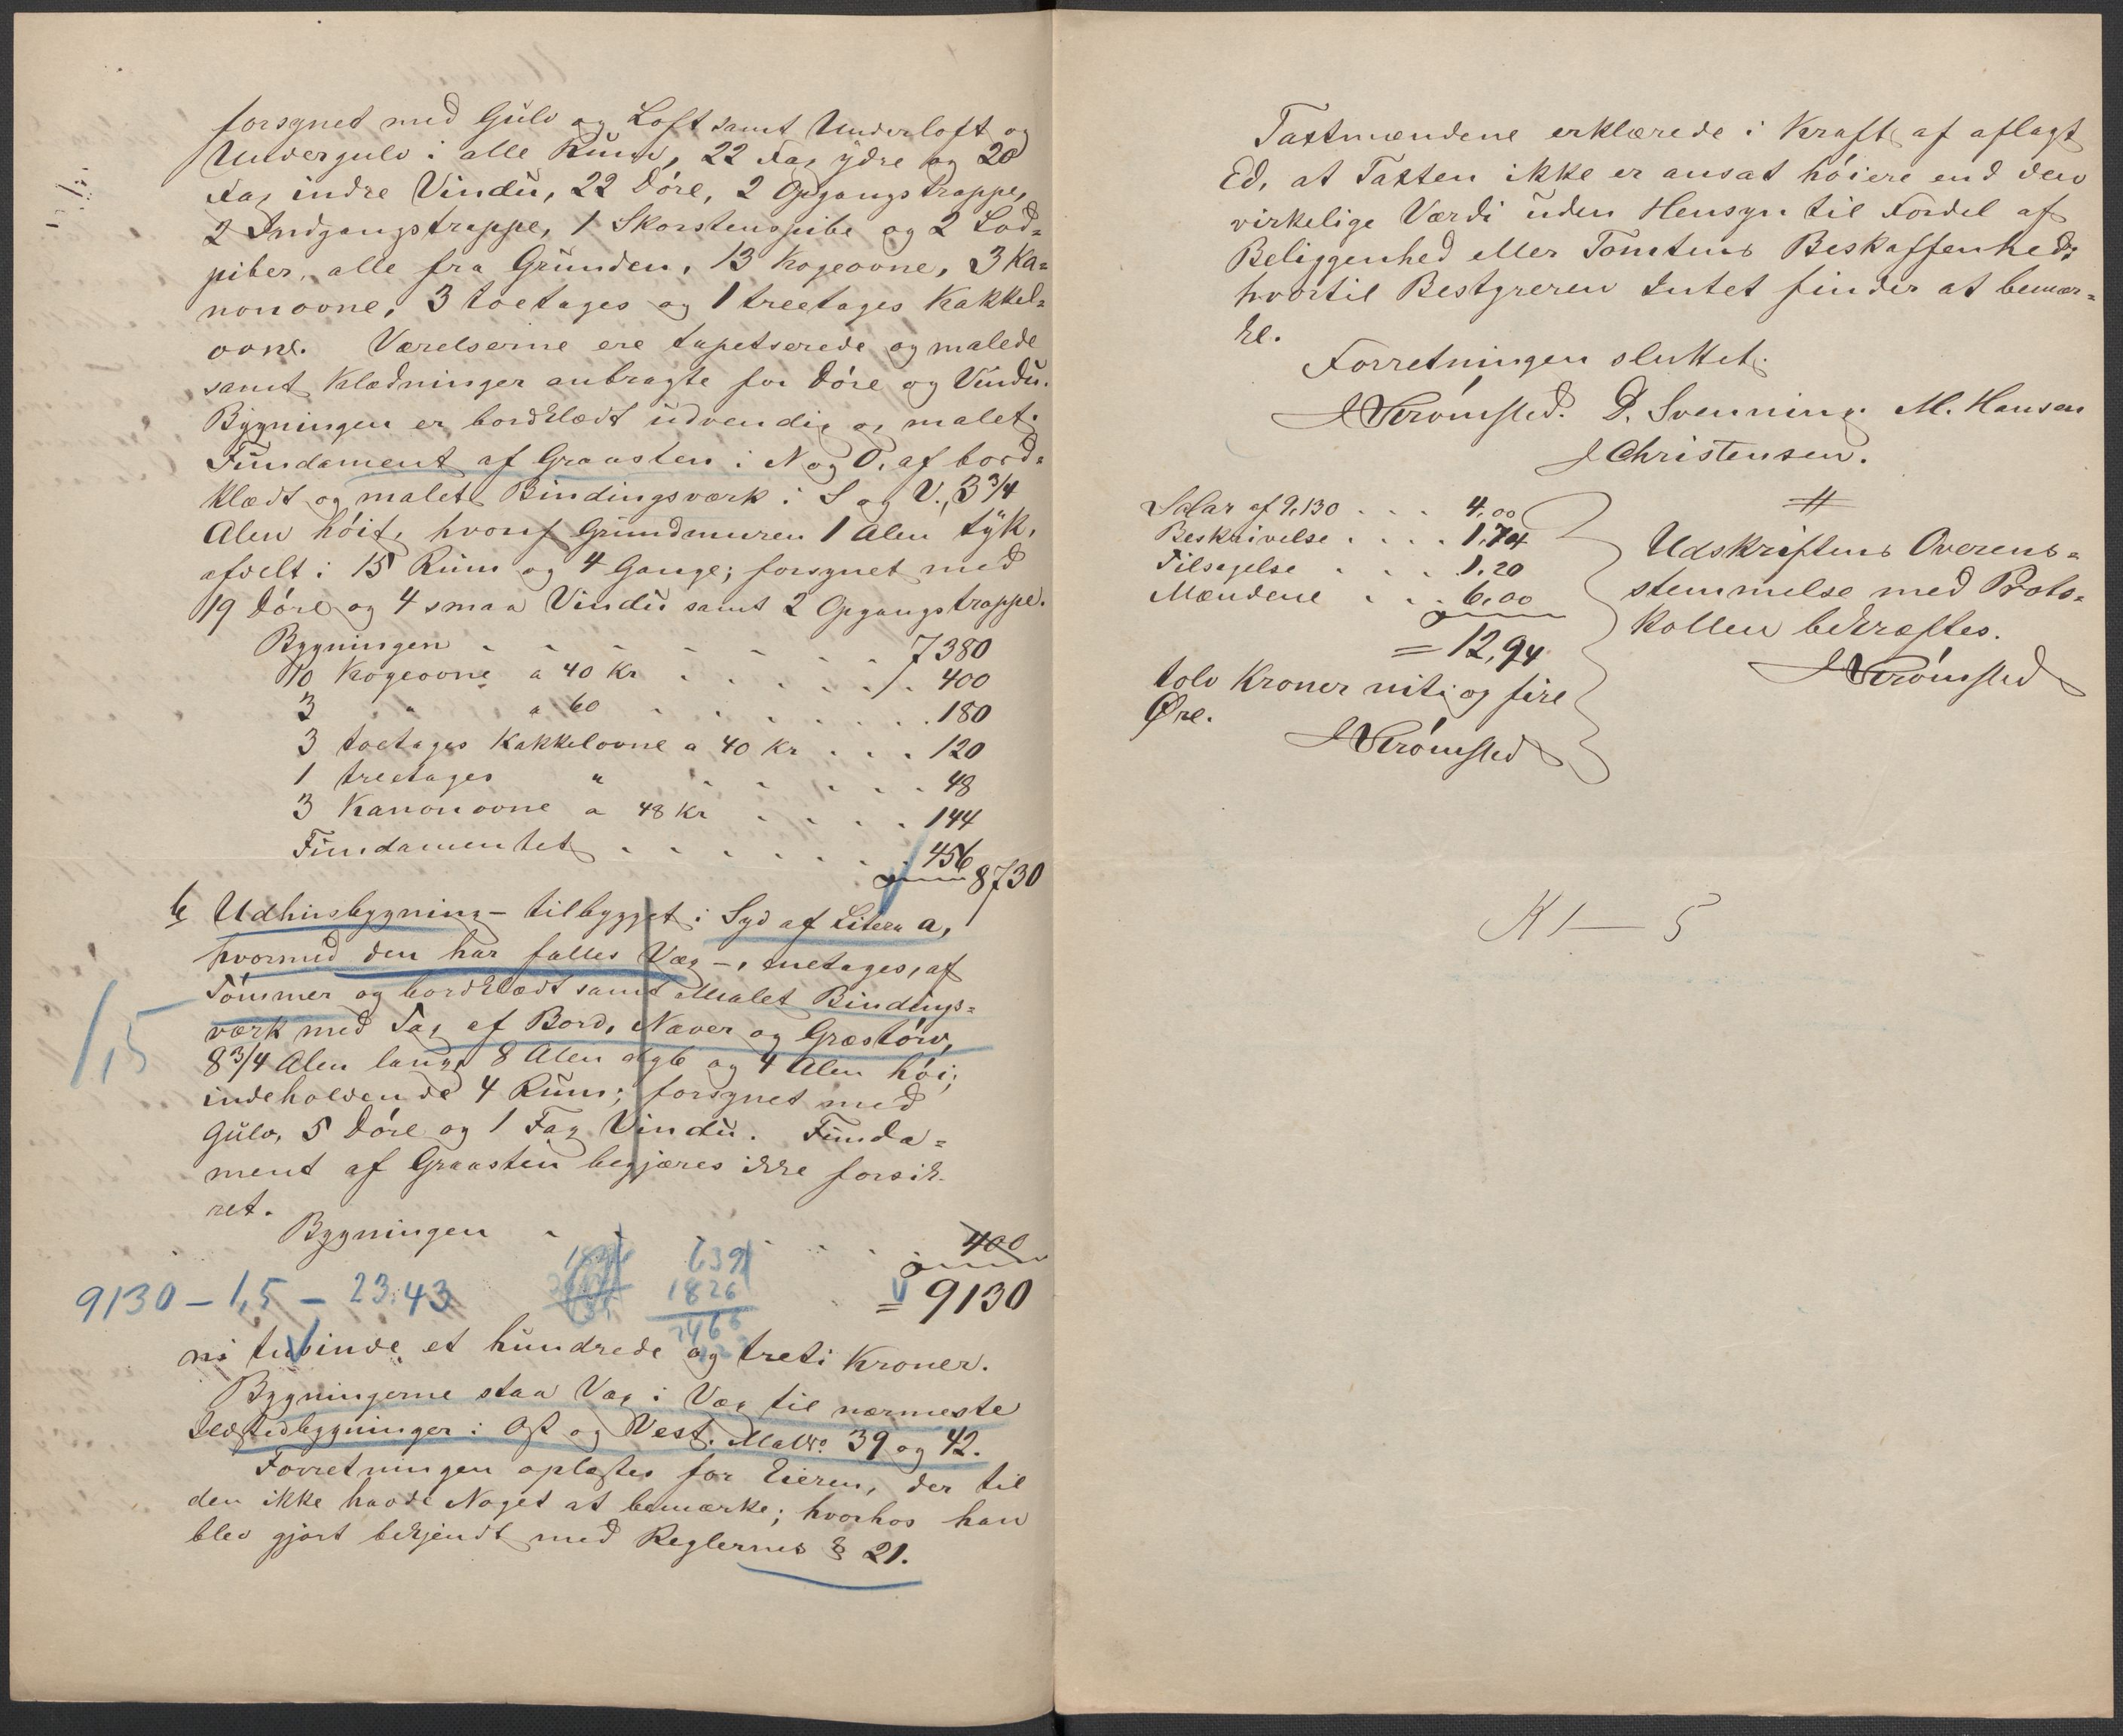 forsynet med Gulv og Loft samt Underloft og
Undergulv i alle Rum, 22 Fag ydre og 20
Fag indre Vindu, 22 Døre, 2 Opgangstrappe,
2 Indgangstrappe, 1 Skorstenspibe og 2 Lod=
piber, alle fra Grunden, 13 Kogeovne, 3 Ka=
nonovne, 3 toetages og 1 treetages Kakkel=
ovne. Værelserne ere tapetserede og malede
samt Klædninger anbragte for Døre og Vindu.
Bygningen er bordklædt udvendig og malet.
Fundament af Graasten i N og O, af bord=
klædt og malet Bindingsværk i S og V., 3 3/4
Alen høit, hvoraf Grundmuren 1 Alen tyk,
afdelt i 15 Rum og 4 Gange; forsynet med
19 Døre og 4 smaa Vindu samt 2 Opgangstrappe.
Bygningen . . . . . . . 7380
10 Kogeovne a 40 Kr . . . . . . 400
3 " a 60 . . . . . . . 180
3 toetages Kakkelovne a 40 Kr . . . 120
1 treetages " . . . . . . 48
3 Kanonovne a 48 Kr . . . . 144
Fundamentet . . . . . . . 456
8730
b Udhusbygning - tilbygget i Syd af Litera a,
hvormed den har fælles Væg -, enetages, af
Tømmer og bordklædt samt Malet Bindings=
værk med Tag af Bord, Næver og Græstørv,
1,5
8 3/4 Alen lang, 8 Alen dyb og 4 Alen høi;
indeholdende 4 Rum; forsynet med
Gulv, 5 Døre og 1 Fag Vindu. Funda=
ment af Graasten begjæres ikke forsik-
ret.
Bygningen . . . . . . . 400
9130 - 1,5 - 23.43
639
1826
2466
= 9130
ni tusinde et hundrede og treti Kroner.
Bygningerne staa Væg i Væg til nærmeste
Ildstedbygninger i Øst og Vest. MatNo. 39 og 42.
Forretningen oplæstes for Eieren, der til
den ikke havde Noget at bemærke; hvorhos han
blev gjort bekjendt med Reglernes § 21.
Taxtmændene erklærede i Kraft af aflagt
Ed, at Taxten ikke er ansat høiere end den
virkelige Værdi uden Hensyn til Fordel af
Beliggenhed eller Tomtens Beskaffenhed,
hvortil Bestyreren Intet finder at bemær=
ke.
Forretningen sluttet.
J Strømsted. D. Svenning M. Hansen
J Christensen.
Salar af 9,130 . . . 4.00
Beskrivelse . . . . 1.74
Tilsigelse . . . 1.20
Mændene . . . 6.00
= 12,94
tolv Kroner niti og fire
Øre.
J Strømsted
Udskriftens Overens=
stemmelse med Proto=
kollen bekræftes.
J Strømsted
K 1 — 5